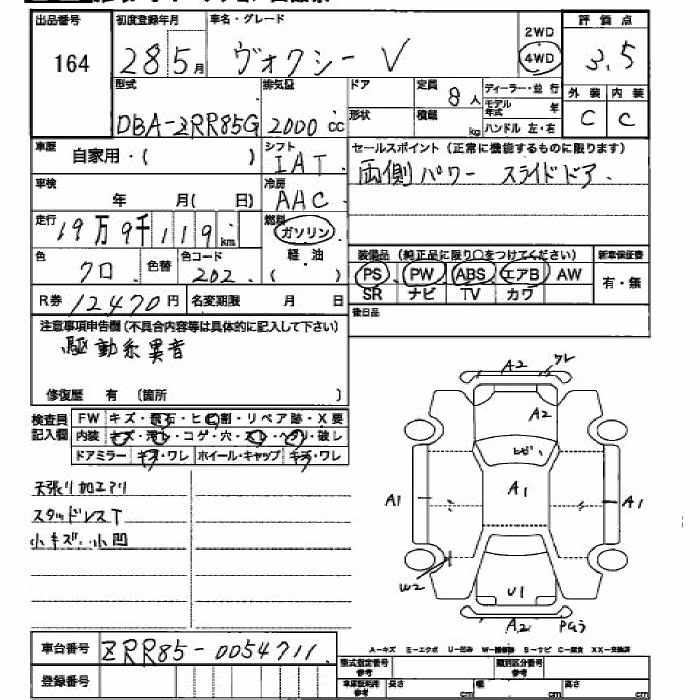 出品番号 初度登録年月 車名・グレード 2WD 評価点
164 28 5月 ヴォクシー V 4WD 3.5
型式 排気量 ドア 定員 8人 ディーラー・並行 外装 内装
DBA-ZRR85G 2000cc 形状 積載 kg モデル年式 年 C C
ハンドル 左・右
車歴 自家用・( ) シフト IAT セールスポイント(正常に機能するものに限ります)
車検 年 月( 日) 冷房 AAC 両側パワー スライドドア
走行 19万9千119km 燃料 ガソリン
軽油
( )
色 クロ 色替 色コード 202 装備品(純正品に限り○をつけてください) 新車保証書
PS PW ABS エアB AW 有・無
SR ナビ TV カワ
R券 12470円 名変期限 月 日 後日品
注意事項申告欄(不具合内容等は具体的に記入して下さい)
駆動系異音
修復歴 有 (箇所 )
検査員記入欄 FW キズ・飛石・ヒビ割・リペア跡・X要
内装 キズ・汚レ・コゲ・穴・スレ・ヘタリ・破レ
ドアミラー キズ・ワレ ホイール・キャップ キズ・ワレ
天張り加工アリ
スタッドレスT
小キズ・小凹
A2 ワレ
A2
ヒビ
A1 A1 A1
W2
U1
A2
車台番号 ZRR85-0054711
A-キズ E-エクボ U-凹み W-補修跡 S-サビ C-腐食 XX-交換済
登録番号
型式指定番号 参考 類別区分番号 参考
車庫証明用 参考 長さ cm 幅 cm 高さ cm